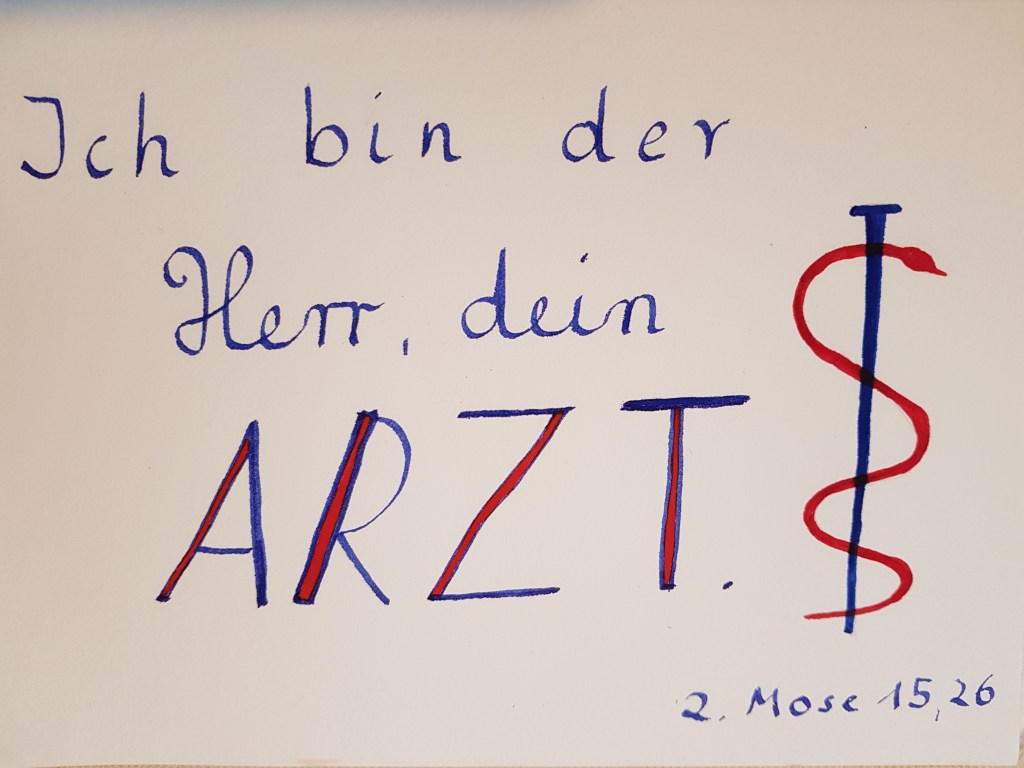 Ich bin der
Herr, dein
ARZT.
2. Mose 15,26